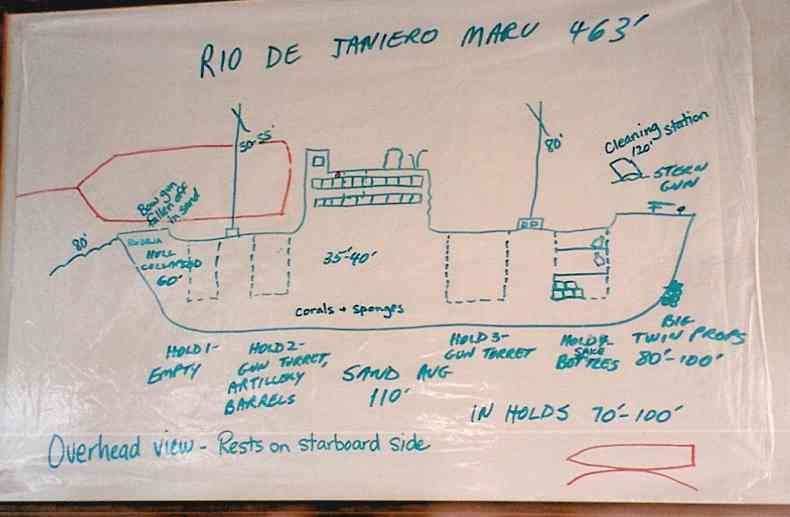 RIO DE JANIERO MARU 463'
50-55'
80'
Cleaning station
120'
STERN
GUN
Bow gun
fallen off
in sand
80'
HULL
COLLAPSED
60'
35'-40'
corals + sponges
HOLD 1-
EMPTY
HOLD 2-
GUN TURRET,
ARTILLERY
BARRELS
SAND AVG
110'
HOLD 3-
GUN TURRET
HOLD 4
SAKE
BOTTLES
BIG
TWIN PROPS
80'-100'
IN HOLDS 70'-100'
Overhead view - Rests on starboard side